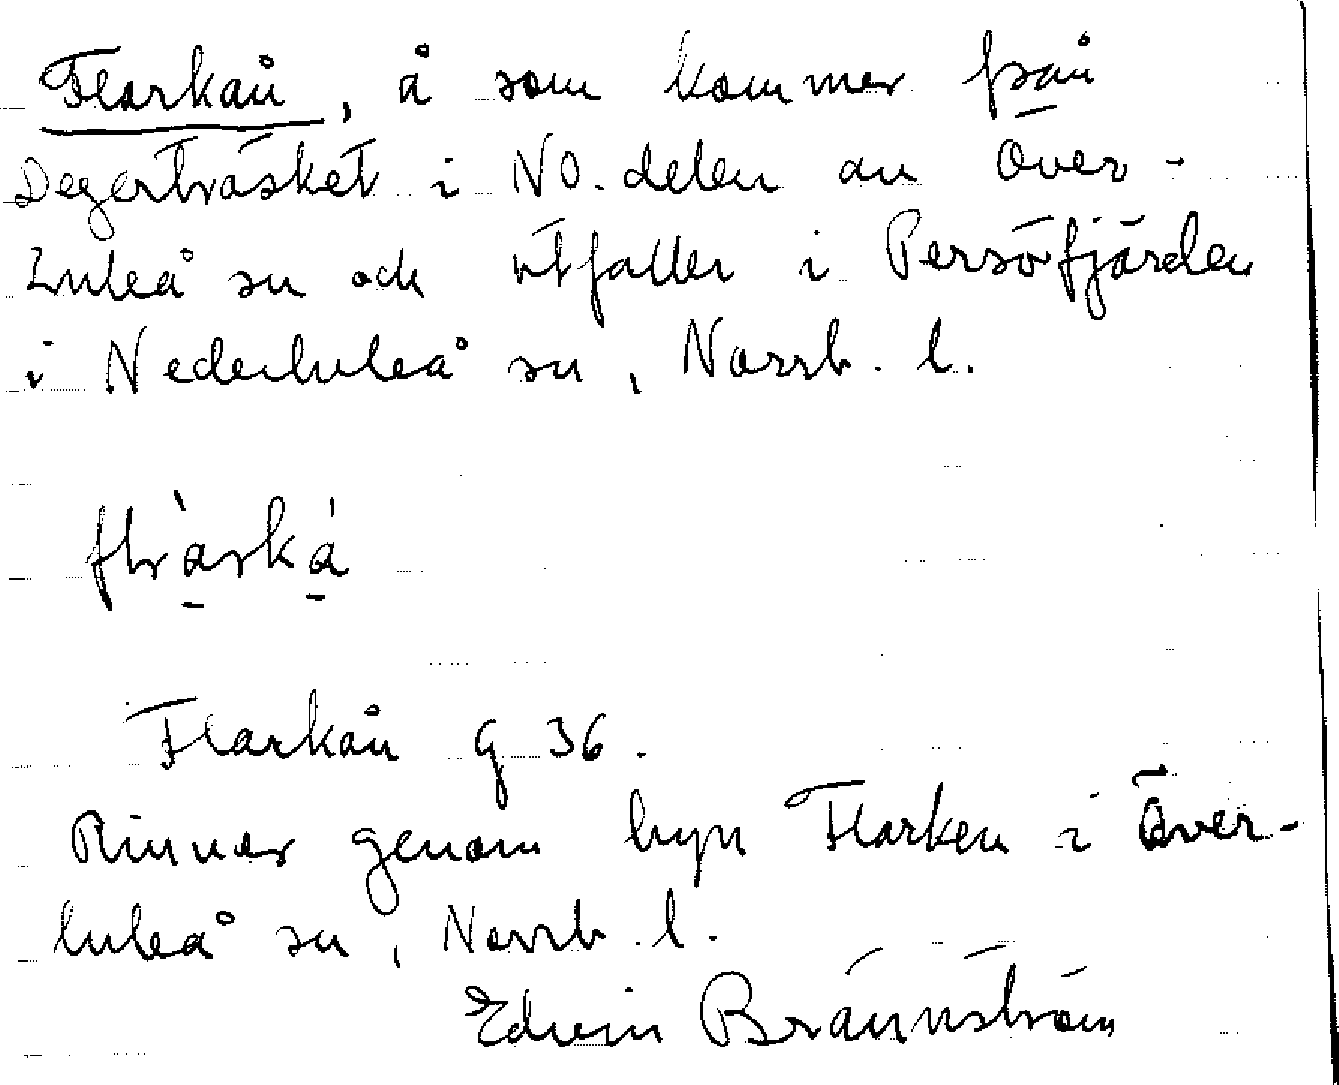 Flarkån, å som kommer från
Degerträsket i NO. delen av Över-
Luleå sn och utfaller i Persöfjärden
i Nederluleå sn, Norrb. l.
Flarkån G 36.
Rinner genom byn Flarken i Över-
luleå sn, Norrb. l.
Edvin Brännström